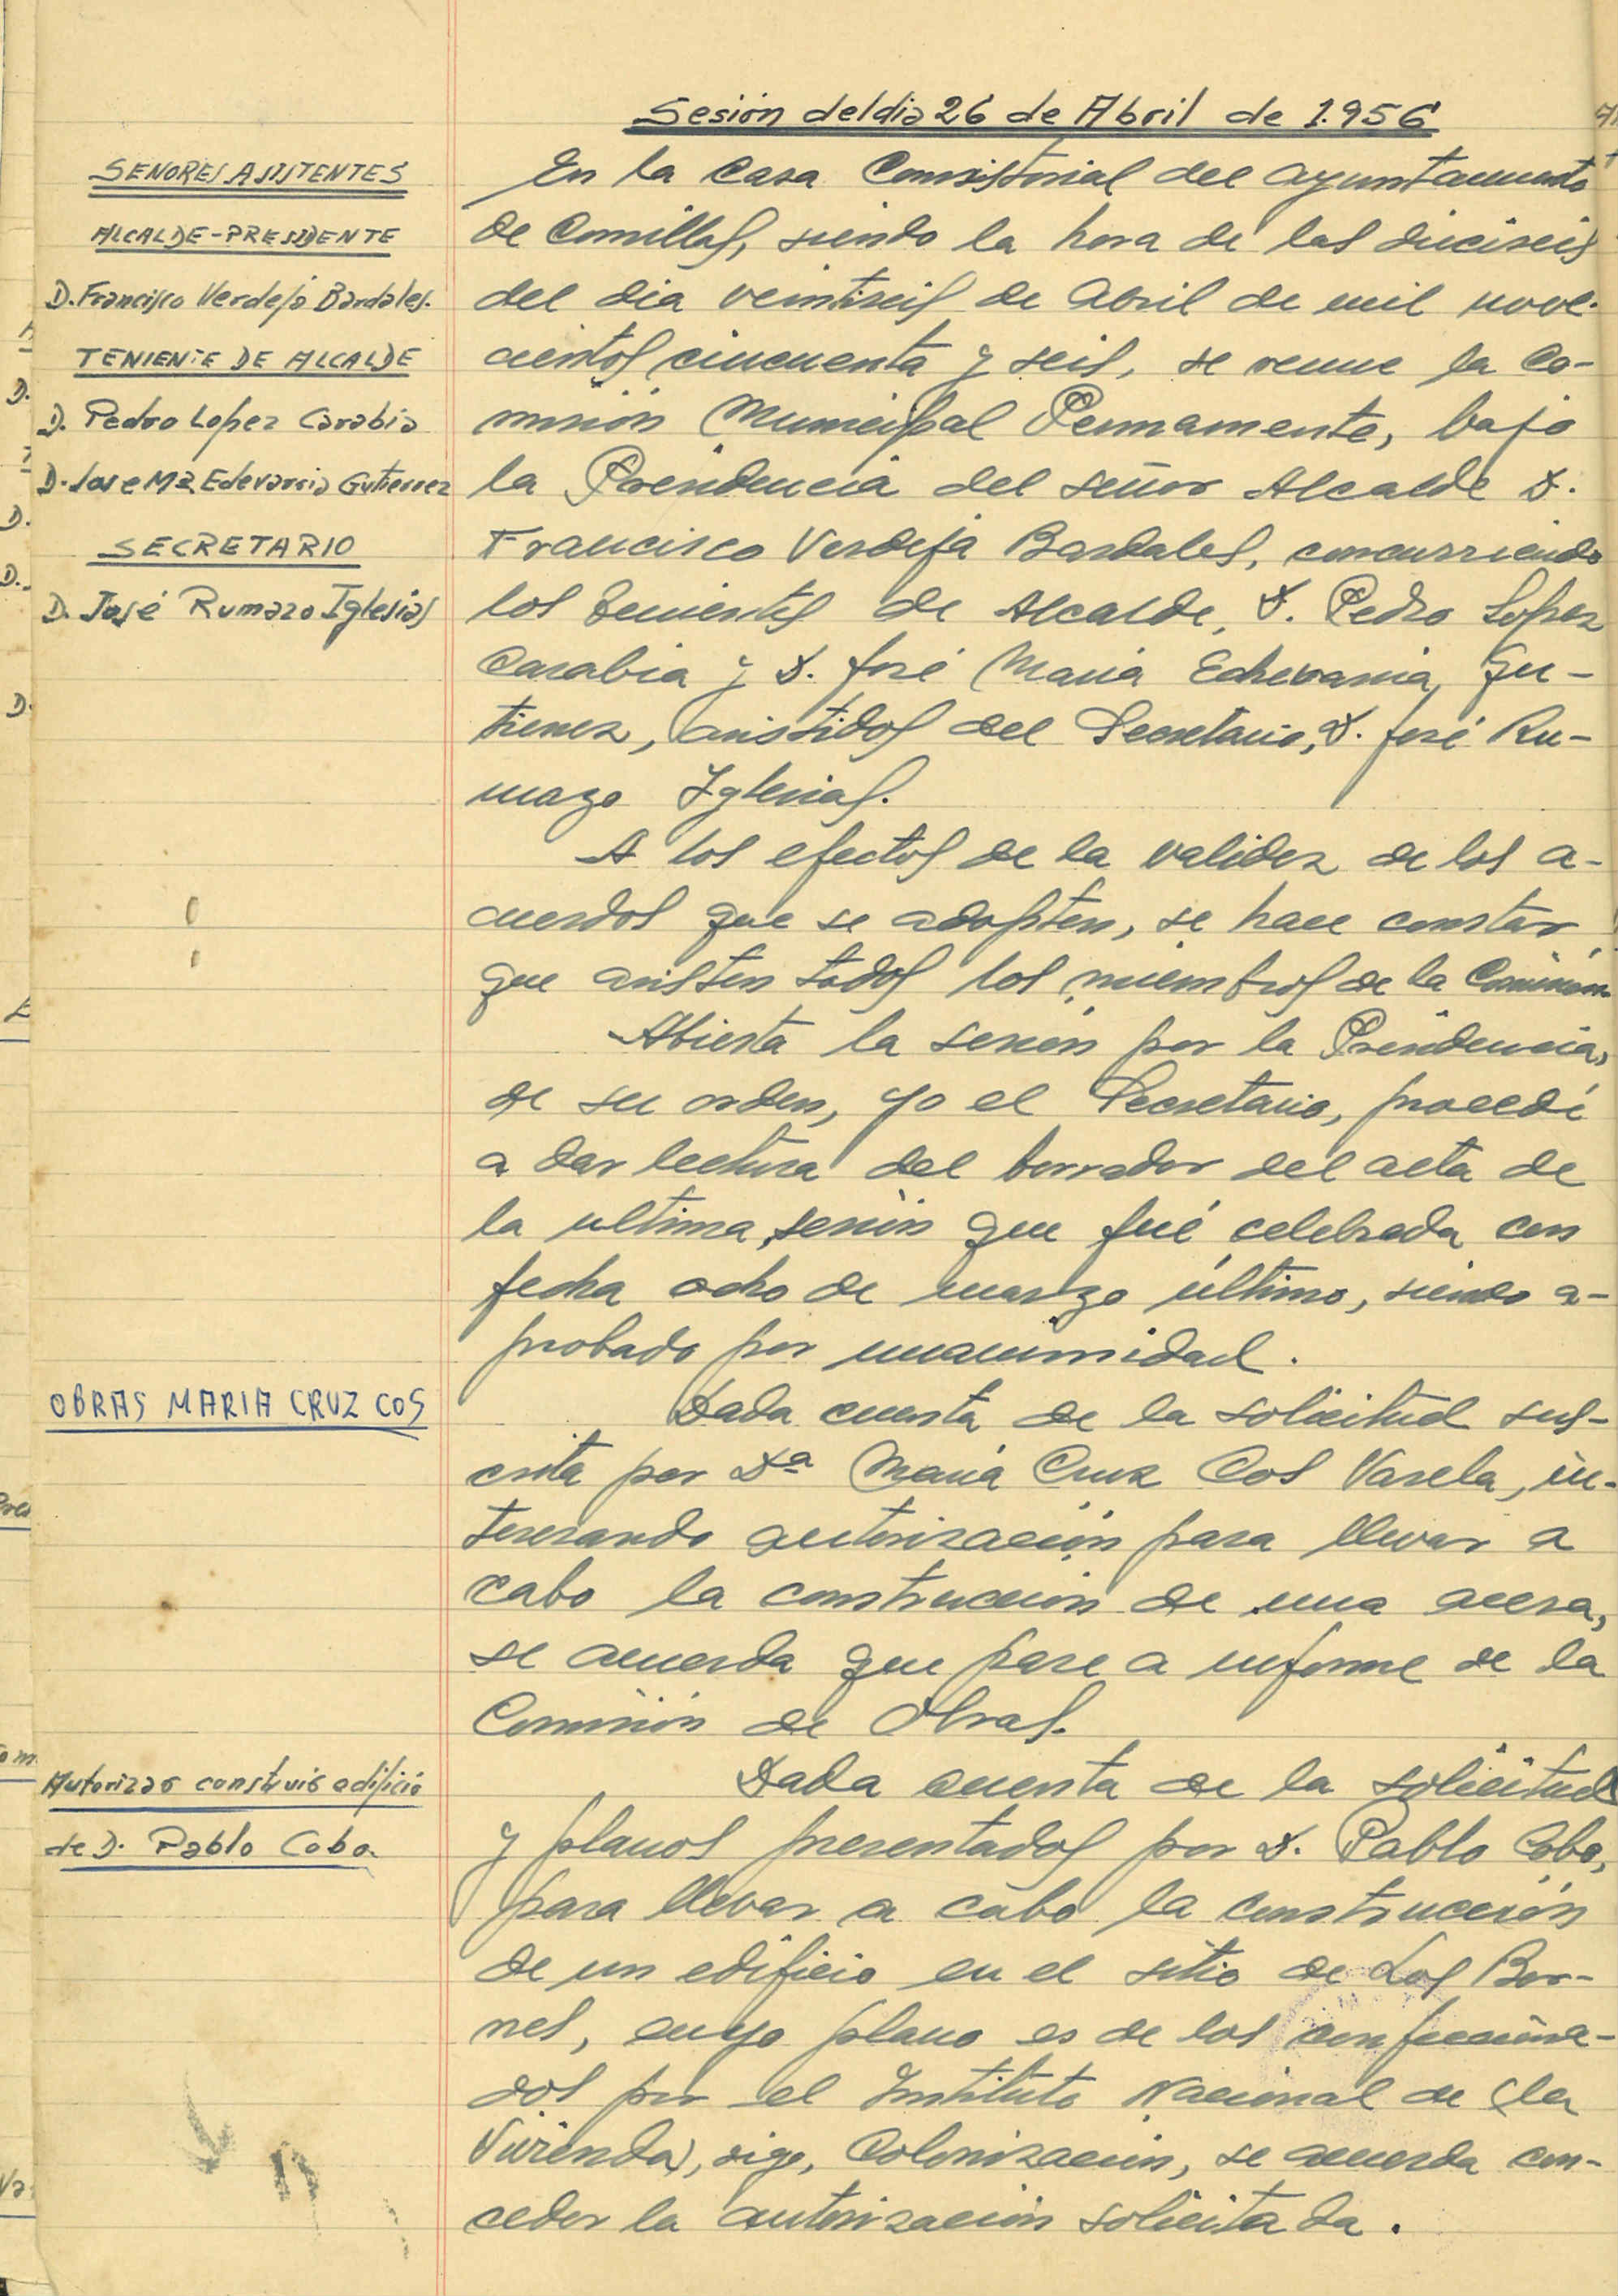 Sesión del dia 26 de Abril de 1.956
SEÑORES ASISTENTES
ALCALDE-PRESIDENTE
D. Francisco Verdeja Bardales.
TENIENTE DE ALCALDE
D. Pedro Lopez Carabia
D. Jose Mª Echevarria Gutierrez
SECRETARIO
D. José Rumazo Iglesias
En la Casa Consistorial del Ayuntamiento
de Comillas, siendo la hora de las dieciseis
del dia veintiseis de Abril de mil nove-
cientos cincuenta y seis, se reune la Co-
misión Municipal Permamente, bajo
la Presidencia del señor Alcalde D.
Francisco Verdeja Bardales, concurriendo
los Tenientes de Alcalde, D. Pedro Lopez
Carabia y D. José Maria Echevarria Gu-
tierrez, asistidos del Secretario, D. José Ru-
mazo Iglesias.
A los efectos de la validez de los a-
cuerdos que se adopten, se hace constar
que asisten todos los miembros de la Comisión.
Abierta la sesión por la Presidencia,
de su orden, yo el Secretario, procedí
a dar lectura del borrador del acta de
la ultima sesión que fué celebrada con
fecha ocho de marzo último, siendo a-
probado por unanimidad.
OBRAS MARIA CRUZ COS
Dada cuenta de la solicitud sus-
crita por Dª Maria Cruz Cos Varela, in-
teresando autorización para llevar a
cabo la construcción de una acera,
se acuerda que pase a informe de la
Comisión de Obras.
Autorizar construir edificio
de D. Pablo Cobo.
Dada cuenta de la solicitud
y planos presentados por D. Pablo Cobo,
para llevar a cabo la construcción
de un edificio en el sitio de Los Bor-
nes, cuyo plano es de los confecciona-
dos por el Instituto Nacional de (la
Vivienda), digo, Colonización, se acuerda con-
ceder la autorización solicitada.